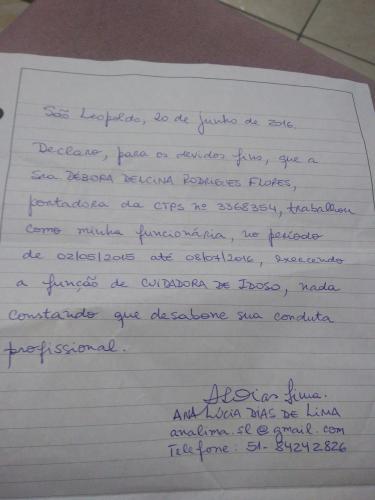 São Leopoldo, 20 de junho de 2016.
Declaro, para os devidos fins, que a
Sra DÉBORA DELCINA RODRIGUES FLORES,
portadora da CTPS nº 3368354, trabalhou
como minha funcionária, no período
de 02/05/2015 até 08/04/2016, exercendo
a função de CUIDADORA DE IDOSO, nada
constando que desabone sua conduta
profissional.
ALDias Lima.
ANA LÚCIA DIAS DE LIMA
analima.sl@gmail.com
Telefone: 51-84242826